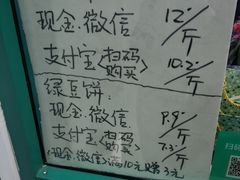 现金.微信 12元/斤
支付宝<扫码购买> 10.2元/斤
绿豆饼:
现金.微信 8.9元/斤
支付宝<扫码> 7.3元/斤
(现金.微信)满10元赠3元
扫码